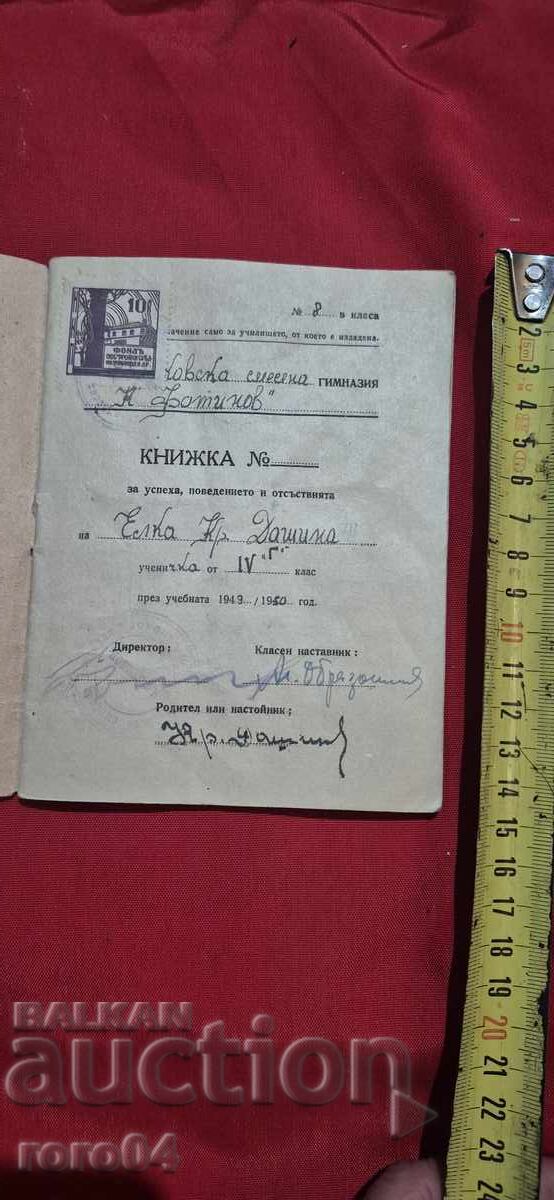 10
ФОНДЪ
№ 8 в класа
начение само за училището, от което е издадена.
ковска смесена ГИМНАЗИЯ
"К Фотинов"
КНИЖКА №
за успеха, поведението и отсъствията
на Елка Кр. Дашина
ученичка от IV "Г" клас
през учебната 1949/1950 год.
Директор: Класен наставник:
Родител или настойник:
Кр. Дашин
2 3 4 5 6 7 8 9 10 11 12 13 14 15 16 17 18 19 20 21 22 23 2
BALKAN
auction
roro04